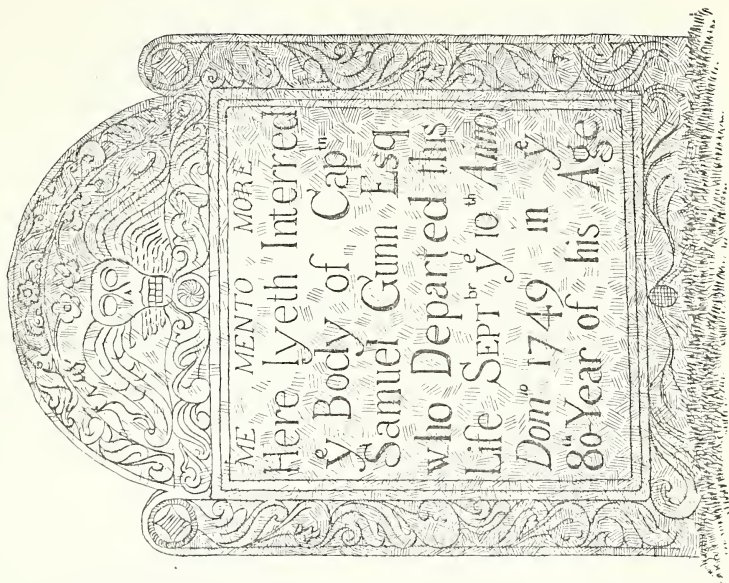 ME MENTO MORE
Here lyeth Interred
yᵉ Body of Capᵗⁿ
Samuel Gunn Esq
who Departed this
Life SEPTᵇʳ yᵉ 10ᵗʰ Anno
Domⁱᵒ 1749 in yᵉ
80ᵗʰ Year of his Age